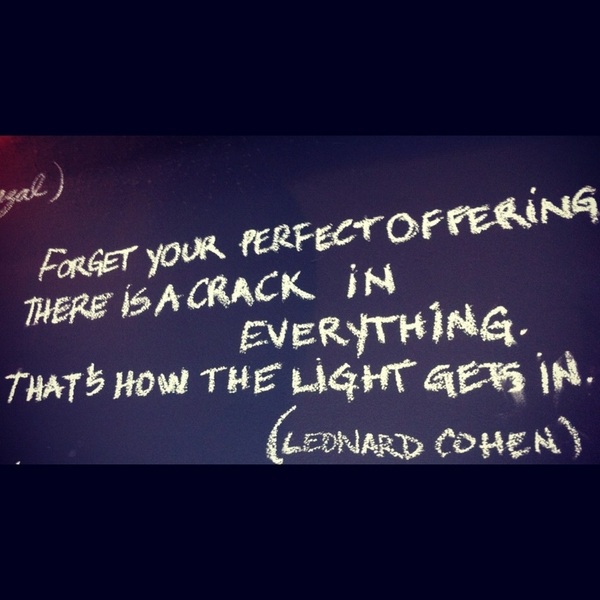 FORGET YOUR PERFECT OFFERING
THERE iS A CRACK iN
EVERYTHiNG.
THAT'S HOW THE LiGHT GETS iN.
(LEONARD COHEN)